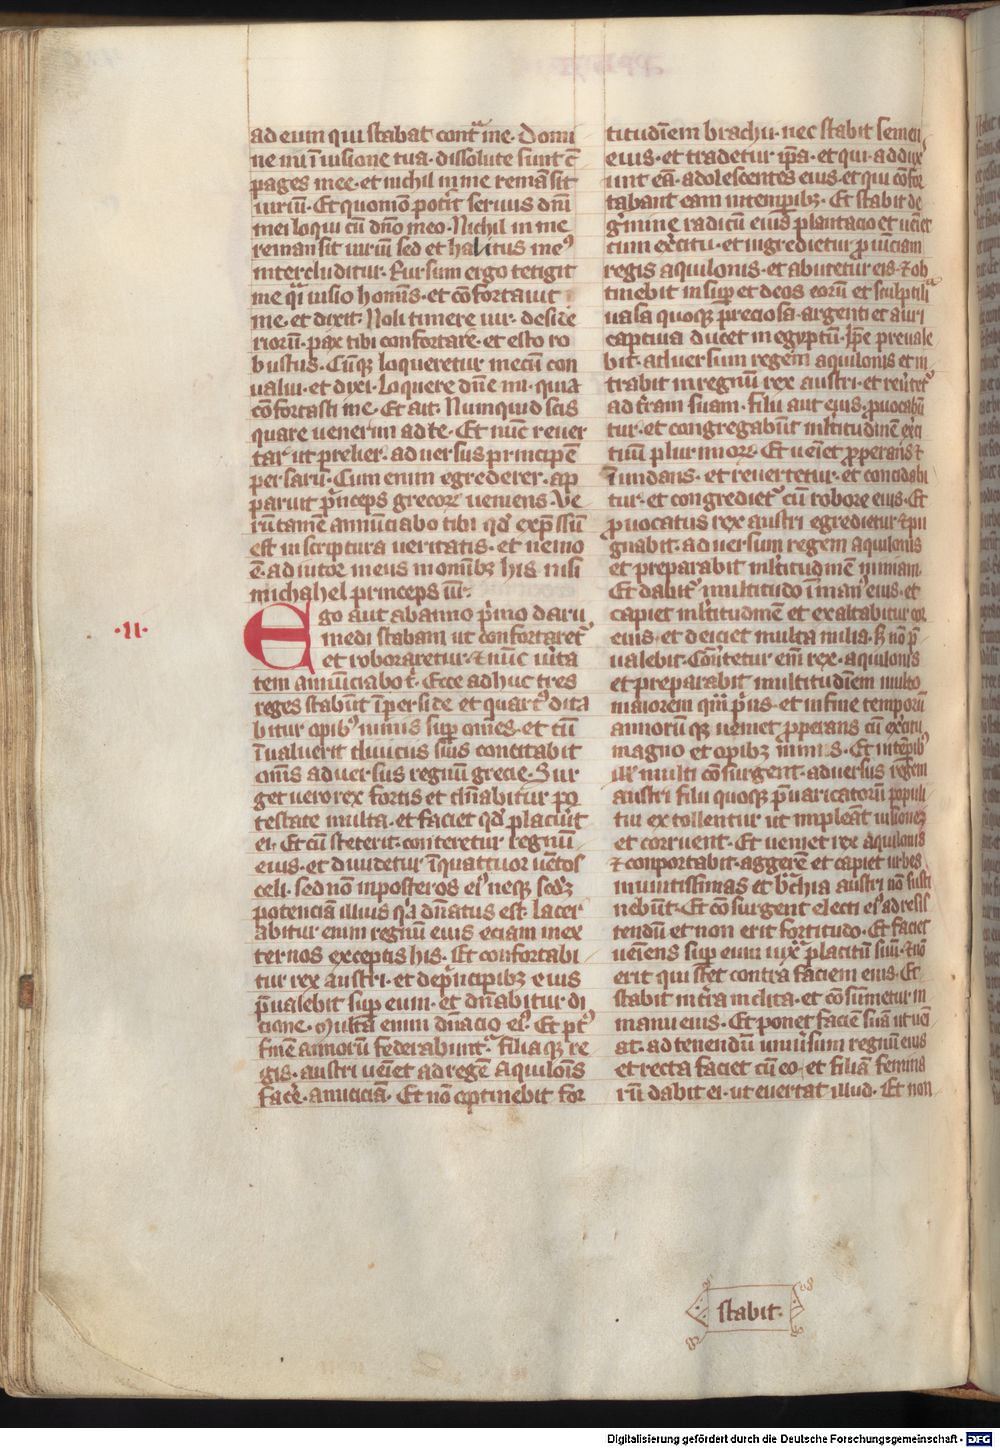 ad eum qui stabat cont̄ me. Domi
ne mi ī uisione tua. dissolute sunt cō
pages mee. et nichil in me remansit
uiriū. Et quomōn potīt seruus dn̄i
mei loqui cū dn̄o meo. Nichil in me
remansit uiriū sed et halitus meꝰ
intercluditur. Rursum ergo tetigit
me qͣi uisio homīs. et cōfortauit
me. et dixit. Noli timere uir deside
riorū. pax tibi confortare. et esto ro
bustus. Cūqꝫ loqueretur mecū con
ualui. et dixi. Loquere dn̄e mi. quia
cōfortasti me. Et ait. Numquid scis
quare uenerim ad te. Et nūc reuer
tar ut prelier. aduersus principem
persarū. Cum enim egrederer. ap
paruit p̄nceps grecorꝫ ueniens. Ve
rūtamē annūciabo tibi qd̄ exp̄ssū
est in scriptura ueritatis. et nemo
ē. adiutor meus in omībꝫ his nisi
michahel princeps ur̄.
.11.
Ego aut̄ ab anno p̄mo darii
medi stabam ut confortaretͬ
et roboraretur. ⁊ nūc uīta
tem annūciabo t̄. Ecce adhuc tres
reges stabūt ī perside et quartꝰ dita
bitur opibꝰ nimis sup̄ om̄es. et cū
īualuerit diuiciis suis concitabit
om̄is aduersus regnū grecie. Sur
get uero rex fortis et dn̄abitur po
testate multa. et faciet qd̄ placuīt
ei. Et cū steterit. conteretur regnū
eius. et diuidetur ī quattuor uētos
celi. sed nō in posteros eiꝰ neqꝫ scd̄ꝫ
potenciā illius qͣ dn̄atus est. lacer
abitur enim regnū eius eciam in ex
ternos exceptis his. Et confortabi
tur rex austri. et de p̄ncipibꝫ eius
p̄ualebit sup̄ eum. et dn̄abitur di
cione. Multa enim dn̄acio eiꝰ. Et pꝰt
finē annorū federabuntͬ. filiaqꝫ re
gis. austri ueīet ad regē aquilōis
facē. amiciciā. Et nō optinebit for
titudīem brachii. nec stabit semen
eius. et tradetur ip̄a. et qui addux̄
unt eā. adolescentes eius. et qui cōfor
tabant eam in temp̄ibꝫ. Et stabit de
ḡmine radicū eiuꝰ plantacio et ueīet
cum ex̄citu. et ingredietur p̄uīciam
regis aquilonis. et abutetur eis. ⁊ ob
tinebit insup̄ et deos eorū et sculptilia
uasa quoqꝫ preciosa. argenti et auri
captiua ducet in egyptū. Ip̄e preuale
bit. aduersum regem aquilonis et in
trabit in regnū rex austri. et reūtetͬ
ad t̄ram suam. filii aut̄ eius. p̄uocabū
tur. et congregabūt mltitudinē ex̄ci
tuū plurimorꝫ. Et ueīet p̄perans ⁊
īundans. et reuertetur. et concidabi
tur. et congredietͬ cū robore eius. Et
p̄uocatus rex austri egredietur ⁊ pu
gnabit. aduersum regem aquilonis
et preparabit mltitudinem nimiam.
Et dabitͬ multitudo ī manͬ eius. et
capiet mltitudinem et exaltabitur cor
eius. et deiciet multa milia. Sꝫ nō p̄
ualebit. Cōūtetur em̄ rex. aquilonis
et preparabit multitudīem multo
maiorem qͣm p̄us. et in fine temporū
annorūqꝫ ueniet p̄perans cū ex̄citu
magno et opibꝫ nimis. Et in temp̄ibꝰ
illis multi cōsurgent. aduersus regem
austri filii quoqꝫ p̄uaricatorū populi
tui extollentur ut impleāt uisionēꝫ
et corruent. Et ueniet rex aquilonis
⁊ conportabit. aggerē et capiet urbes
munitissimas et br̄chia austri nō susti
nebūt. Et cōsurgent electi eiꝰ ad resis
tendū et non erit fortitudo. Et faciet
ueīens sup̄ eum iuxͣ placitū suū. ⁊ nō
erit qui stet contra faciem eius. Et
stabit in t̄ra inclita. et cōsūmetur in
manu eius. Et ponet faciē suā ut ueī
at. ad tenendū uniūsum regnū eius
et recta faciet cū eo. et filiā femina
rū dabit ei. ut euertat illud. Et non
stabit.
Digitalisierung gefördert durch die Deutsche Forschungsgemeinschaft - DFG